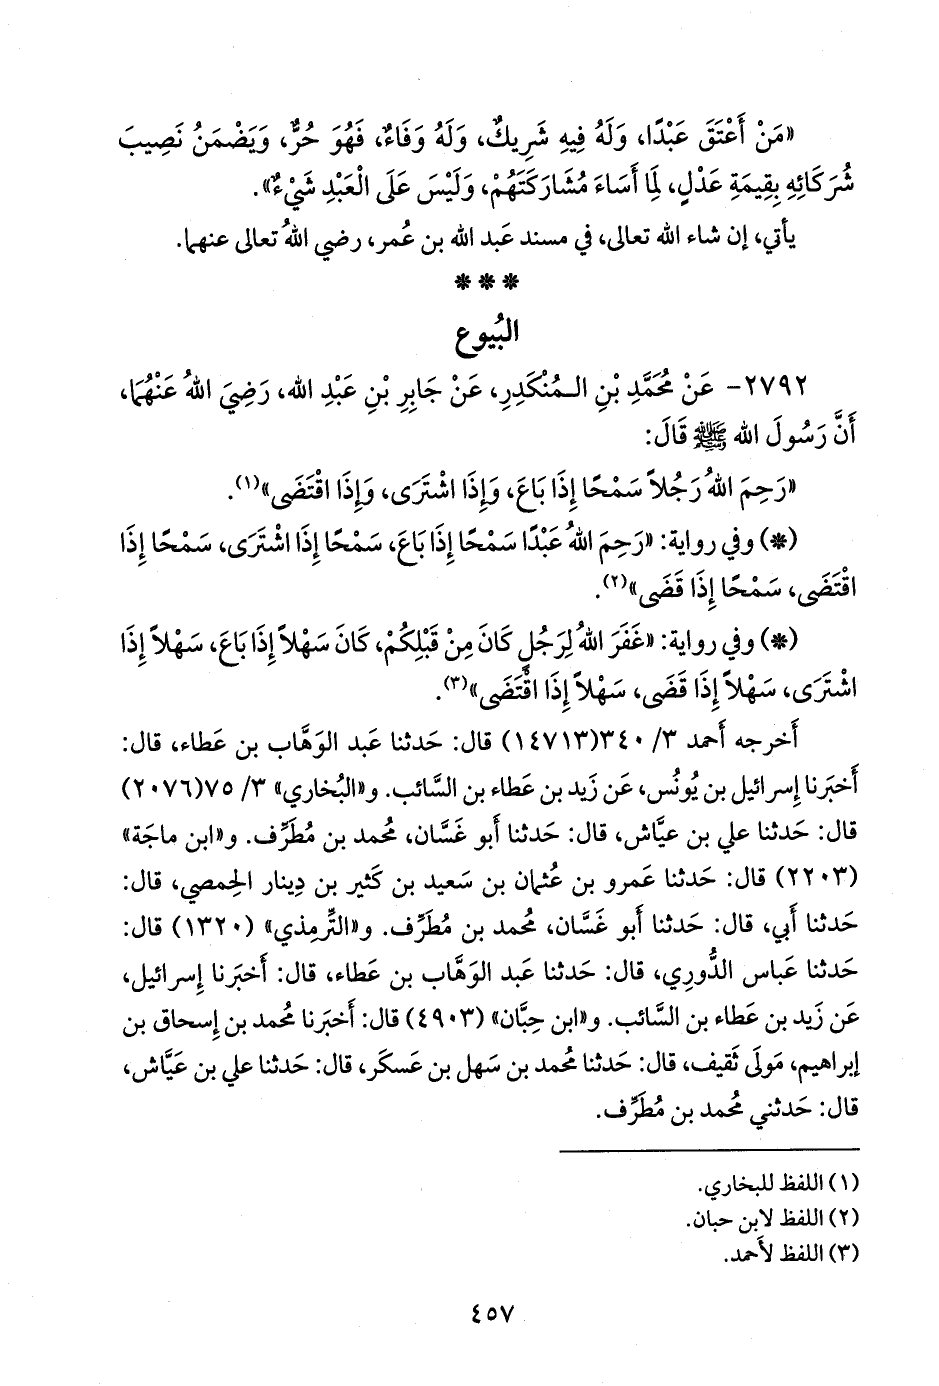 «مَنْ أَعْتَقَ عَبْدًا، وَلَهُ فِيهِ شَرِيكٌ، وَلَهُ وَفَاءٌ، فَهُوَ حُرٌّ، وَيَضْمَنُ نَصِيبَ
شُرَكَائِهِ بِقِيمَةِ عَدْلٍ، لِمَا أَسَاءَ مُشَارَكَتَهُمْ، وَلَيْسَ عَلَى الْعَبْدِ شَيْءٌ».
يأتي، إن شاء الله تعالى، في مسند عَبد الله بن عُمر، رضي اللهُ تعالى عنهما.
* * *
البُيوع
٢٧٩٢- عَنْ مُحَمَّدِ بْنِ الْـمُنْكَدِرِ، عَنْ جَابِرِ بْنِ عَبْدِ الله، رَضِيَ اللهُ عَنْهُمَا،
أَنَّ رَسُولَ الله ﷺ قَالَ:
«رَحِمَ اللهُ رَجُلاً سَمْحًا إِذَا بَاعَ، وَإِذَا اشْتَرَى، وَإِذَا اقْتَضَى»(١).
(*) وفي رواية: «رَحِمَ اللهُ عَبْدًا سَمْحًا إِذَا بَاعَ، سَمْحًا إِذَا اشْتَرَى، سَمْحًا إِذَا
اقْتَضَى، سَمْحًا إِذَا قَضَى»(٢).
(*) وفي رواية: «غَفَرَ اللهُ لِرَجُلٍ كَانَ مِنْ قَبْلِكُمْ، كَانَ سَهْلاً إِذَا بَاعَ، سَهْلاً إِذَا
اشْتَرَى، سَهْلاً إِذَا قَضَى، سَهْلاً إِذَا اقْتَضَى»(٣).
أَخرجه أحمد ٣/ ٣٤٠(١٤٧١٣) قال: حَدثنا عَبد الوَهَّاب بن عَطاء، قال:
أَخبَرنا إِسرائيل بن يُونُس، عَن زَيد بن عَطاء بن السَّائب. و«البُخاري» ٣/ ٧٥(٢٠٧٦)
قال: حَدثنا علي بن عيَّاش، قال: حَدثنا أَبو غَسَّان، مُحمد بن مُطَرِّف. و«ابن ماجَة»
(٢٢٠٣) قال: حَدثنا عَمرو بن عُثمان بن سَعيد بن كَثير بن دِينار الحِمصي، قال:
حَدثنا أَبي، قال: حَدثنا أَبو غَسَّان، مُحمد بن مُطَرِّف. و«التِّرمِذي» (١٣٢٠) قال:
حَدثنا عَباس الدُّورِي، قال: حَدثنا عَبد الوَهَّاب بن عَطاء، قال: أَخبَرنا إِسرائيل،
عَن زَيد بن عَطاء بن السَّائب. و«ابن حِبَّان» (٤٩٠٣) قال: أَخبَرنا مُحمد بن إِسحاق بن
إِبراهيم، مَولَى ثَقيف، قال: حَدثنا مُحمد بن سَهل بن عَسكَر، قال: حَدثنا علي بن عَيَّاش،
قال: حَدثني مُحمد بن مُطَرِّف.
(١) اللفظ للبخاري.
(٢) اللفظ لابن حبان.
(٣) اللفظ لأَحمد.
٤٥٧